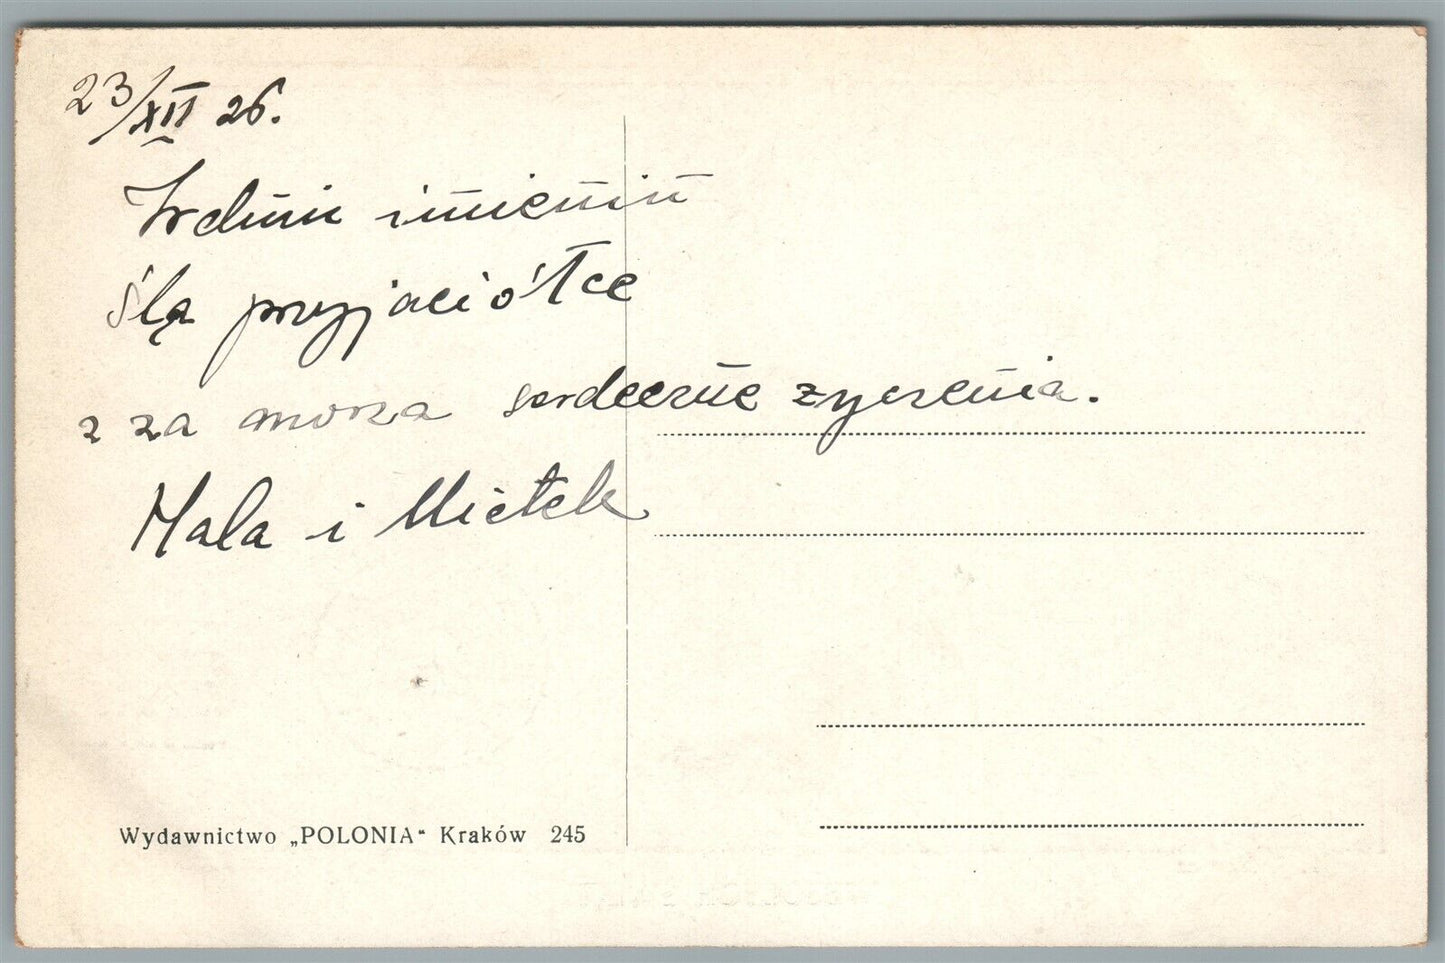 23/XII 26.
W dniu imienin
ślą przyjaciółce
z za morza serdeczne zyczenia.
Hala i Mietek
Wydawnictwo „POLONIA“ Kraków 245